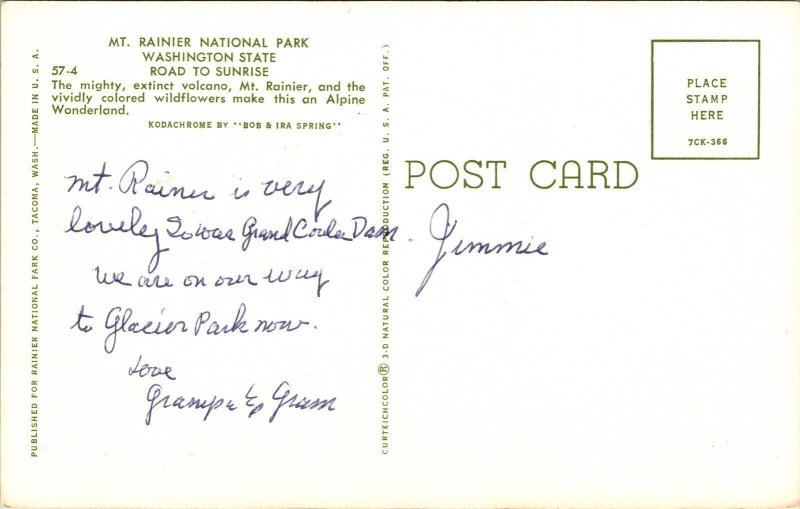 MT. RAINIER NATIONAL PARK
WASHINGTON STATE
57-4 ROAD TO SUNRISE
The mighty, extinct volcano, Mt. Rainier, and the
vividly colored wildflowers make this an Alpine
Wonderland.
KODACHROME BY "BOB & IRA SPRING"
PUBLISHED FOR RAINIER NATIONAL PARK CO., TACOMA, WASH.—MADE IN U. S. A.
mt. Rainer is very
lovely So was Grand Coulee Dam.
we are on our way
to Glacier Park now.
Love
Grampa & Gram
CURTEICHCOLOR® 3-D NATURAL COLOR REPRODUCTION (REG. U. S. A. PAT. OFF.)
POST CARD
PLACE
STAMP
HERE
7CK-366
Jimmie